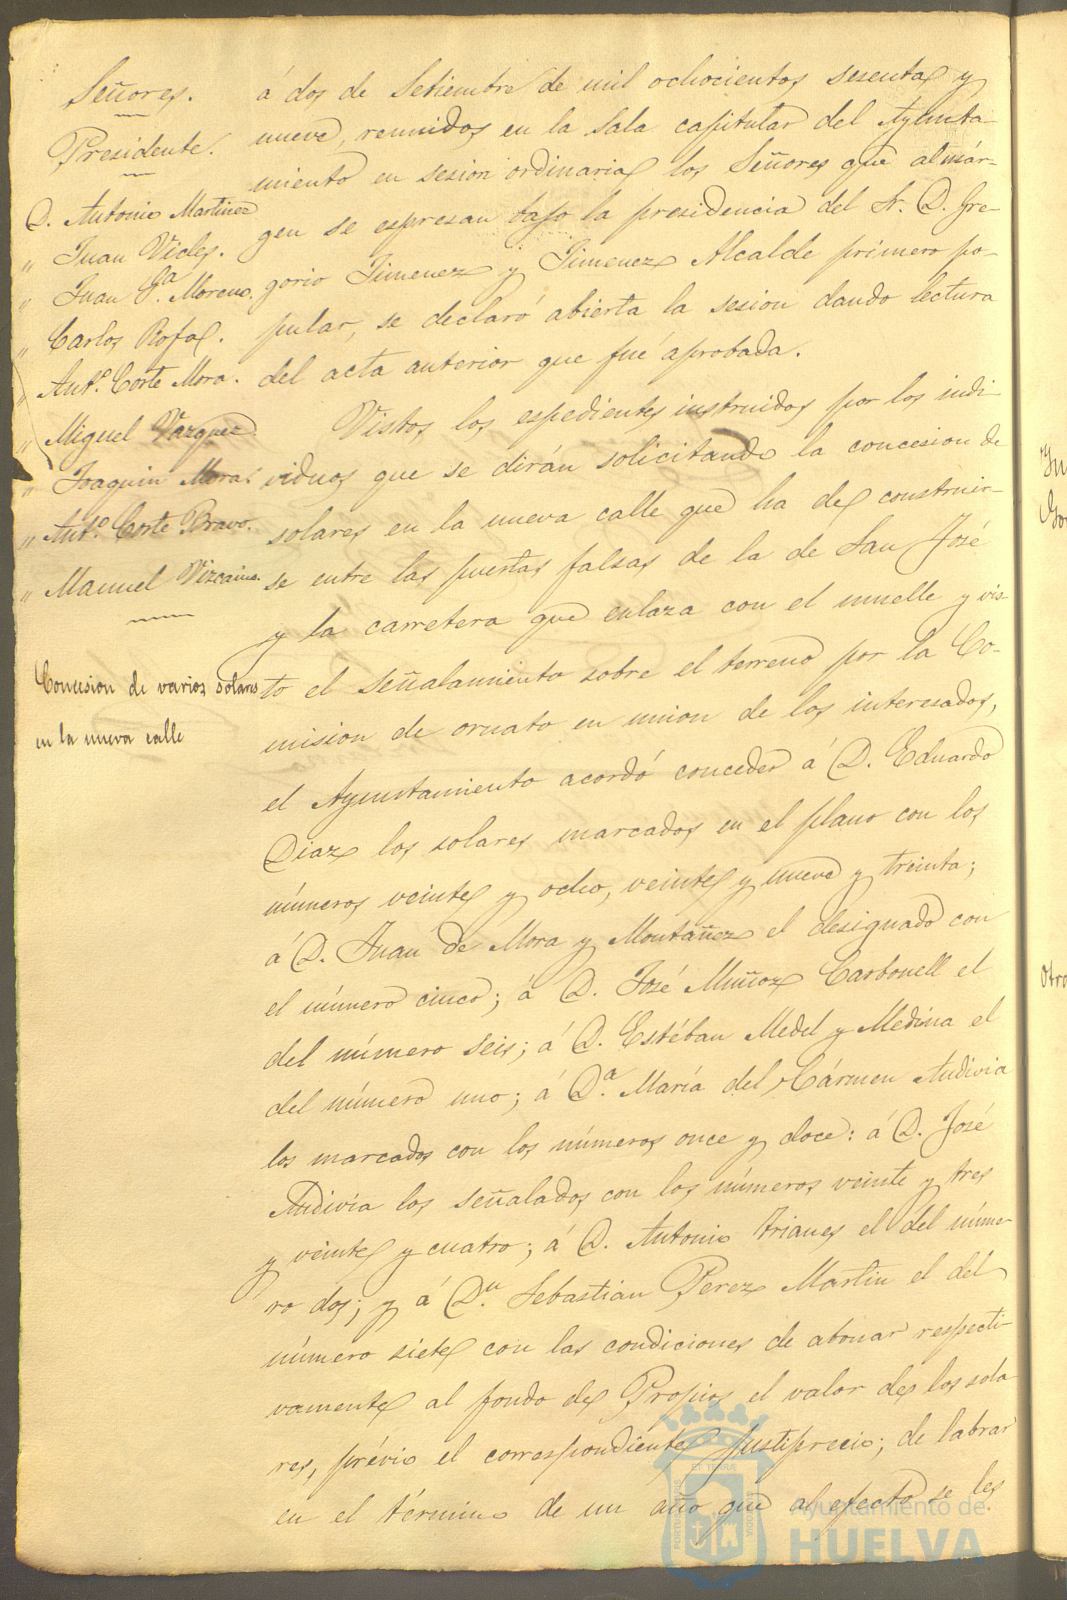 Señores.
Presidente.
D. Antonio Martinez
" Juan Vides.
" Juan Gª. Moreno.
" Carlos Rofa.
" Antº. Corte Mora.
" Miguel Vazquez
" Joaquin Mora.
" Antº. Corte Bravo.
" Manuel Vizcaino.
Concesion de varios solares
en la nueva calle
á dos de Setiembre de mil ochocientos sesenta y
nueve, reunidos en la sala capitular del Ayunta-
miento en sesion ordinaria los Señores que al már-
gen se espresan bajo la presidencia del Sr. D. Gre-
gorio Jimenez y Jimenez Alcalde primero po-
pular, se declaró abierta la sesion dando lectura
del acta anterior que fué aprobada.
Vistos los espedientes instruidos por los indi-
viduos que se dirán solicitando la concesion de
solares en la nueva calle que ha de construir-
se entre las puertas falsas de la de San José
y la carretera que enlaza con el muelle y vis-
to el señalamiento sobre el terreno por la Co-
mision de ornato en union de los interesados,
el Ayuntamiento acordó conceder á D. Eduardo
Diaz los solares marcados en el plano con los
números veinte y ocho, veinte y nueve y treinta;
á D. Juan de Mora y Montáñez el designado con
el número cinco; á D. José Muñoz Carbonell el
del número seis; á D. Estéban Medel y Medina el
del número uno; á Dª. María del Cármen Audivia
los marcados con los números once y doce: á D. José
Audivia los señalados con los números veinte y tres
y veinte y cuatro; á D. Antonio Trianes el del núme-
ro dos; y á Dn. Sebastian Perez Martin el del
número siete con las condiciones de abonar respecti-
vamente al fondo de Propios el valor de los sola-
res, prévio el correspondiente justiprecio; de labrar
en el término de un año que al efecto se les
Ayuntamiento de
HUELVA
Otro